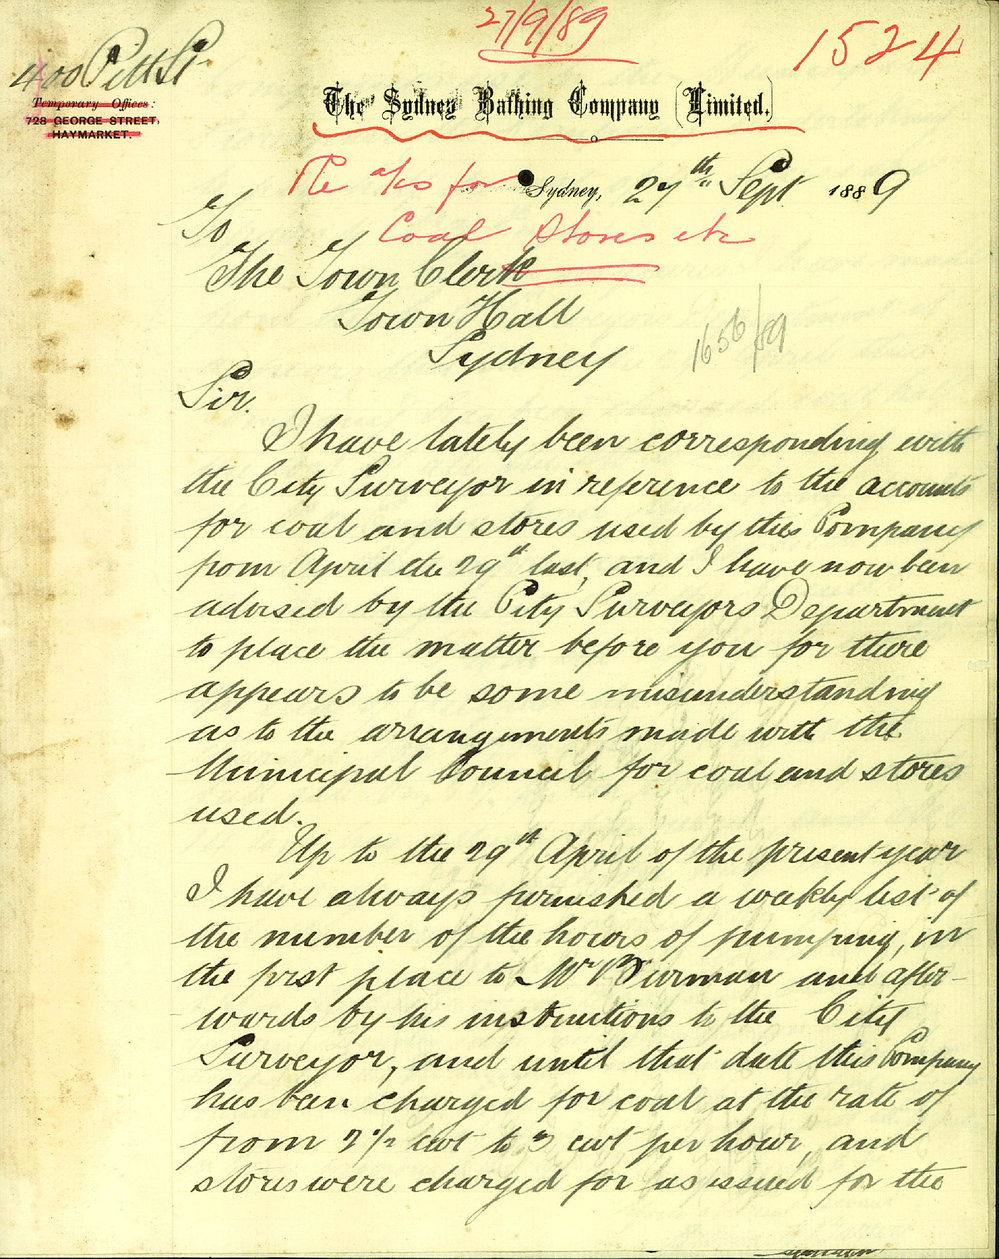 27/9/89
1524
400 Pitt St
Temporary Offices:
728 GEORGE STREET,
HAYMARKET.
The Sydney Bathing Company (Limited.)
Re a/cs for
Sydney, 27th Sept 1889
Coal Stores etc
To
The Town Clerk
Town Hall
Sydney
1656/89
Sir.
I have lately been corresponding with
the City Surveyor in reference to the accounts
for coal and stores used by this Company
from April the 29th last, and I have now been
advised by the City Surveyors Department
to place the matter before you for there
appears to be some misunderstanding
as to the arrangements made with the
Municipal Council for coal and stores
used.
Up to the 29th April of the present year
I have always furnished a weekly list of
the number of the hours of pumping, in
the first place to Mr Burman and after-
wards by his instructions to the City
Surveyor, and until that date this Company
has been charged for coal at the rate of
from 2 1/2 cwt to 3 cwt per hour, and
stores were charged for as issued for the